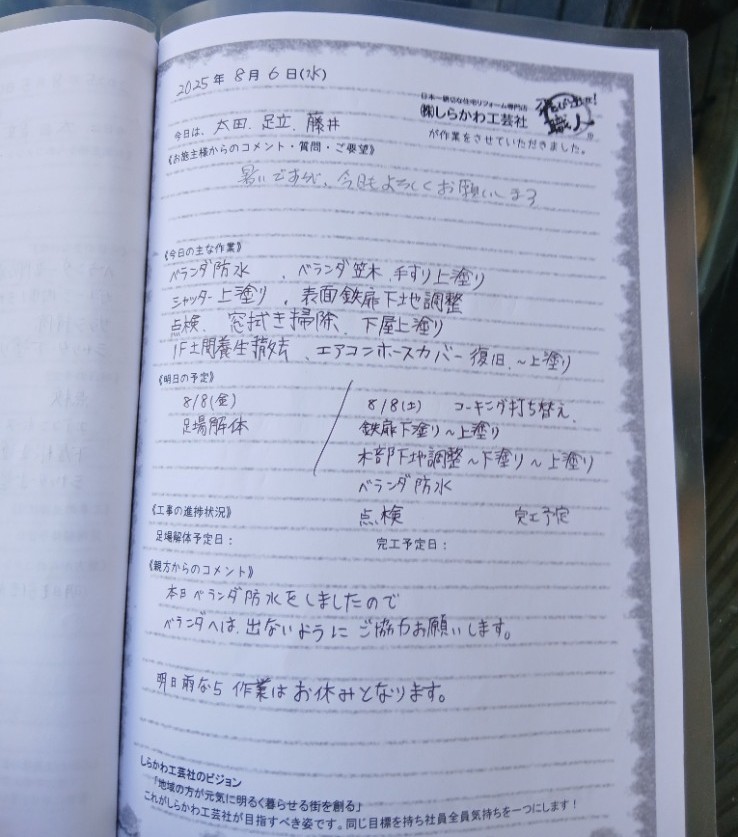 2025年 8月 6日(水)
日本一親切な住宅リフォーム専門店
㈱しらかわ工芸社
飛び出せ!
職人
今日は、太田、足立、藤井
が作業をさせていただきました。
《お施主様からのコメント・質問・ご要望》
暑いですが、今日もよろしくお願いします
《今日の主な作業》
ベランダ防水 、ベランダ笠木、手すり上塗り
シャッター上塗り 、表面鉄扉下地調整
点検、窓拭き掃除、下屋上塗り
1F土間養生撤去 、エアコンホースカバー復旧、~上塗り
《明日の予定》
8/8(金)
足場解体
8/8(土) コーキング打ち替え、
鉄扉下塗り~上塗り
木部下地調整~下塗り~上塗り
ベランダ防水
点検 完工予定
《工事の進捗状況》
足場解体予定日: 完工予定日:
《親方からのコメント》
本日ベランダ防水をしましたので
ベランダへは、出ないようにご協力お願いします。
明日雨なら作業はお休みとなります。
しらかわ工芸社のビジョン
「地域の方が元気に明るく暮らせる街を創る」
これがしらかわ工芸社が目指すべき姿です。同じ目標を持ち社員全員気持ちを一つにします!